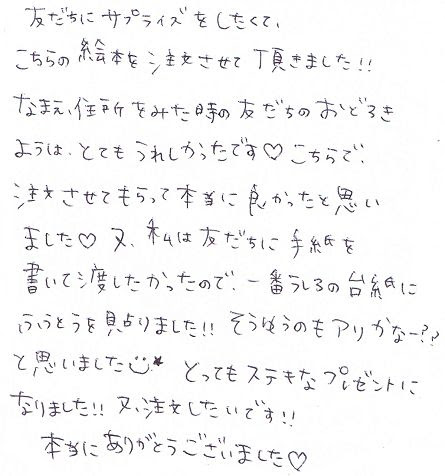 友だちに サプライズをしたくて、
こちらの絵本を注文させて頂きました!!
なまえ、住所をみた時の友だちのおどろき
ようは、とてもうれしかったです♡ こちらで、
注文させてもらって本当に良かったと思い
ました♡ 又、私は友だちに手紙を
書いて渡したかったので、一番うしろの台紙に
ふうとうを貼りました!! そうゆうのもアリかなー??
と思いました☺★ とってもステキなプレゼントに
なりました!! 又、注文したいです!!
本当にありがとうございました♡